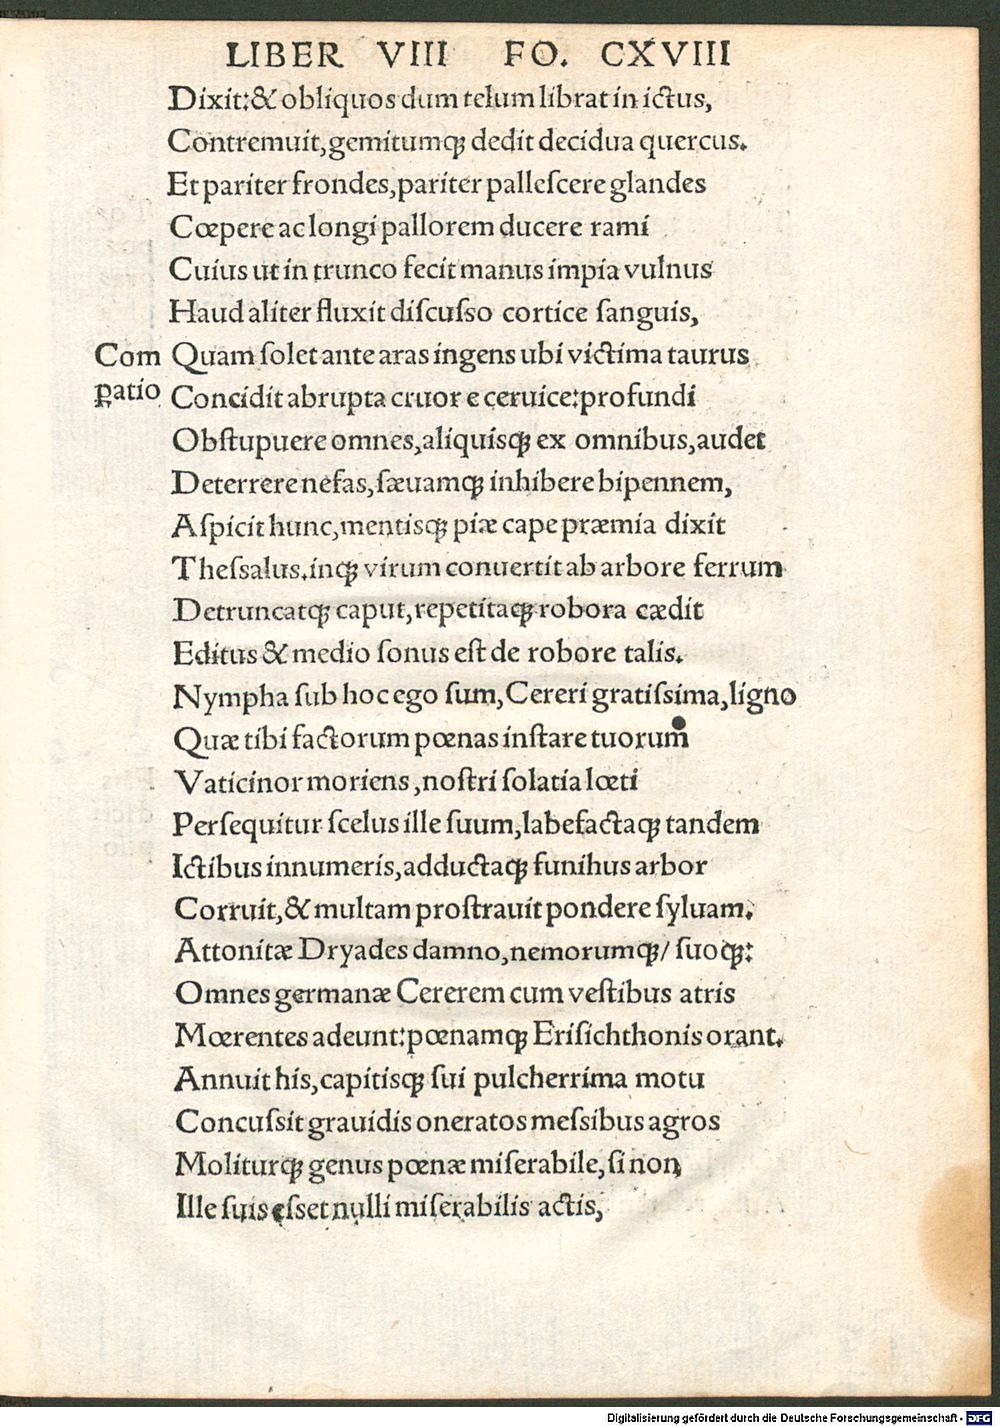 LIBER VIII FO. CXVIII
Dixit:& obliquos dum telum librat in ictus,
Contremuit,gemitumqꝫ dedit decidua quercus.
Et pariter frondes,pariter palleſcere glandes
Cœpere ac longi pallorem ducere rami
Cuius ut in trunco fecit manus impia vulnus
Haud aliter fluxit diſcuſso cortice ſanguis,
Com
ꝑatio
Quam ſolet ante aras ingens ubi victima taurus
Concidit abrupta cruor e ceruice:profundi
Obſtupuere omnes,aliquisqꝫ ex omnibus,audet
Deterrere nefas,ſæuamqꝫ inhibere bipennem,
Aſpicit hunc,mentisqꝫ piæ cape præmia dixit
Theſsalus.inqꝫ virum conuertit ab arbore ferrum
Detruncatqꝫ caput,repetitaqꝫ robora cædit
Editus & medio ſonus eſt de robore talis.
Nympha ſub hoc ego ſum,Cereri gratiſsima,ligno
Quæ tibi factorum pœnas inſtare tuorum
Vaticinor moriens,noſtri ſolatia lœti
Perſequitur ſcelus ille ſuum,labefactaqꝫ tandem
Ictibus innumeris,adductaqꝫ funihus arbor
Corruit,& multam proſtrauit pondere ſyluam.
Attonitæ Dryades damno,nemorumqꝫ/ ſuoqꝫ:
Omnes germanæ Cererem cum veſtibus atris
Mœrentes adeunt:pœnamqꝫ Eriſichthonis orant.
Annuit his,capitisqꝫ ſui pulcherrima motu
Concuſsit grauidis oneratos meſsibus agros
Moliturqꝫ genus pœnæ miſerabile,ſi non
Ille ſuis eſset nulli miſerabilis actis,
Digitalisierung gefördert durch die Deutsche Forschungsgemeinschaft - DFG